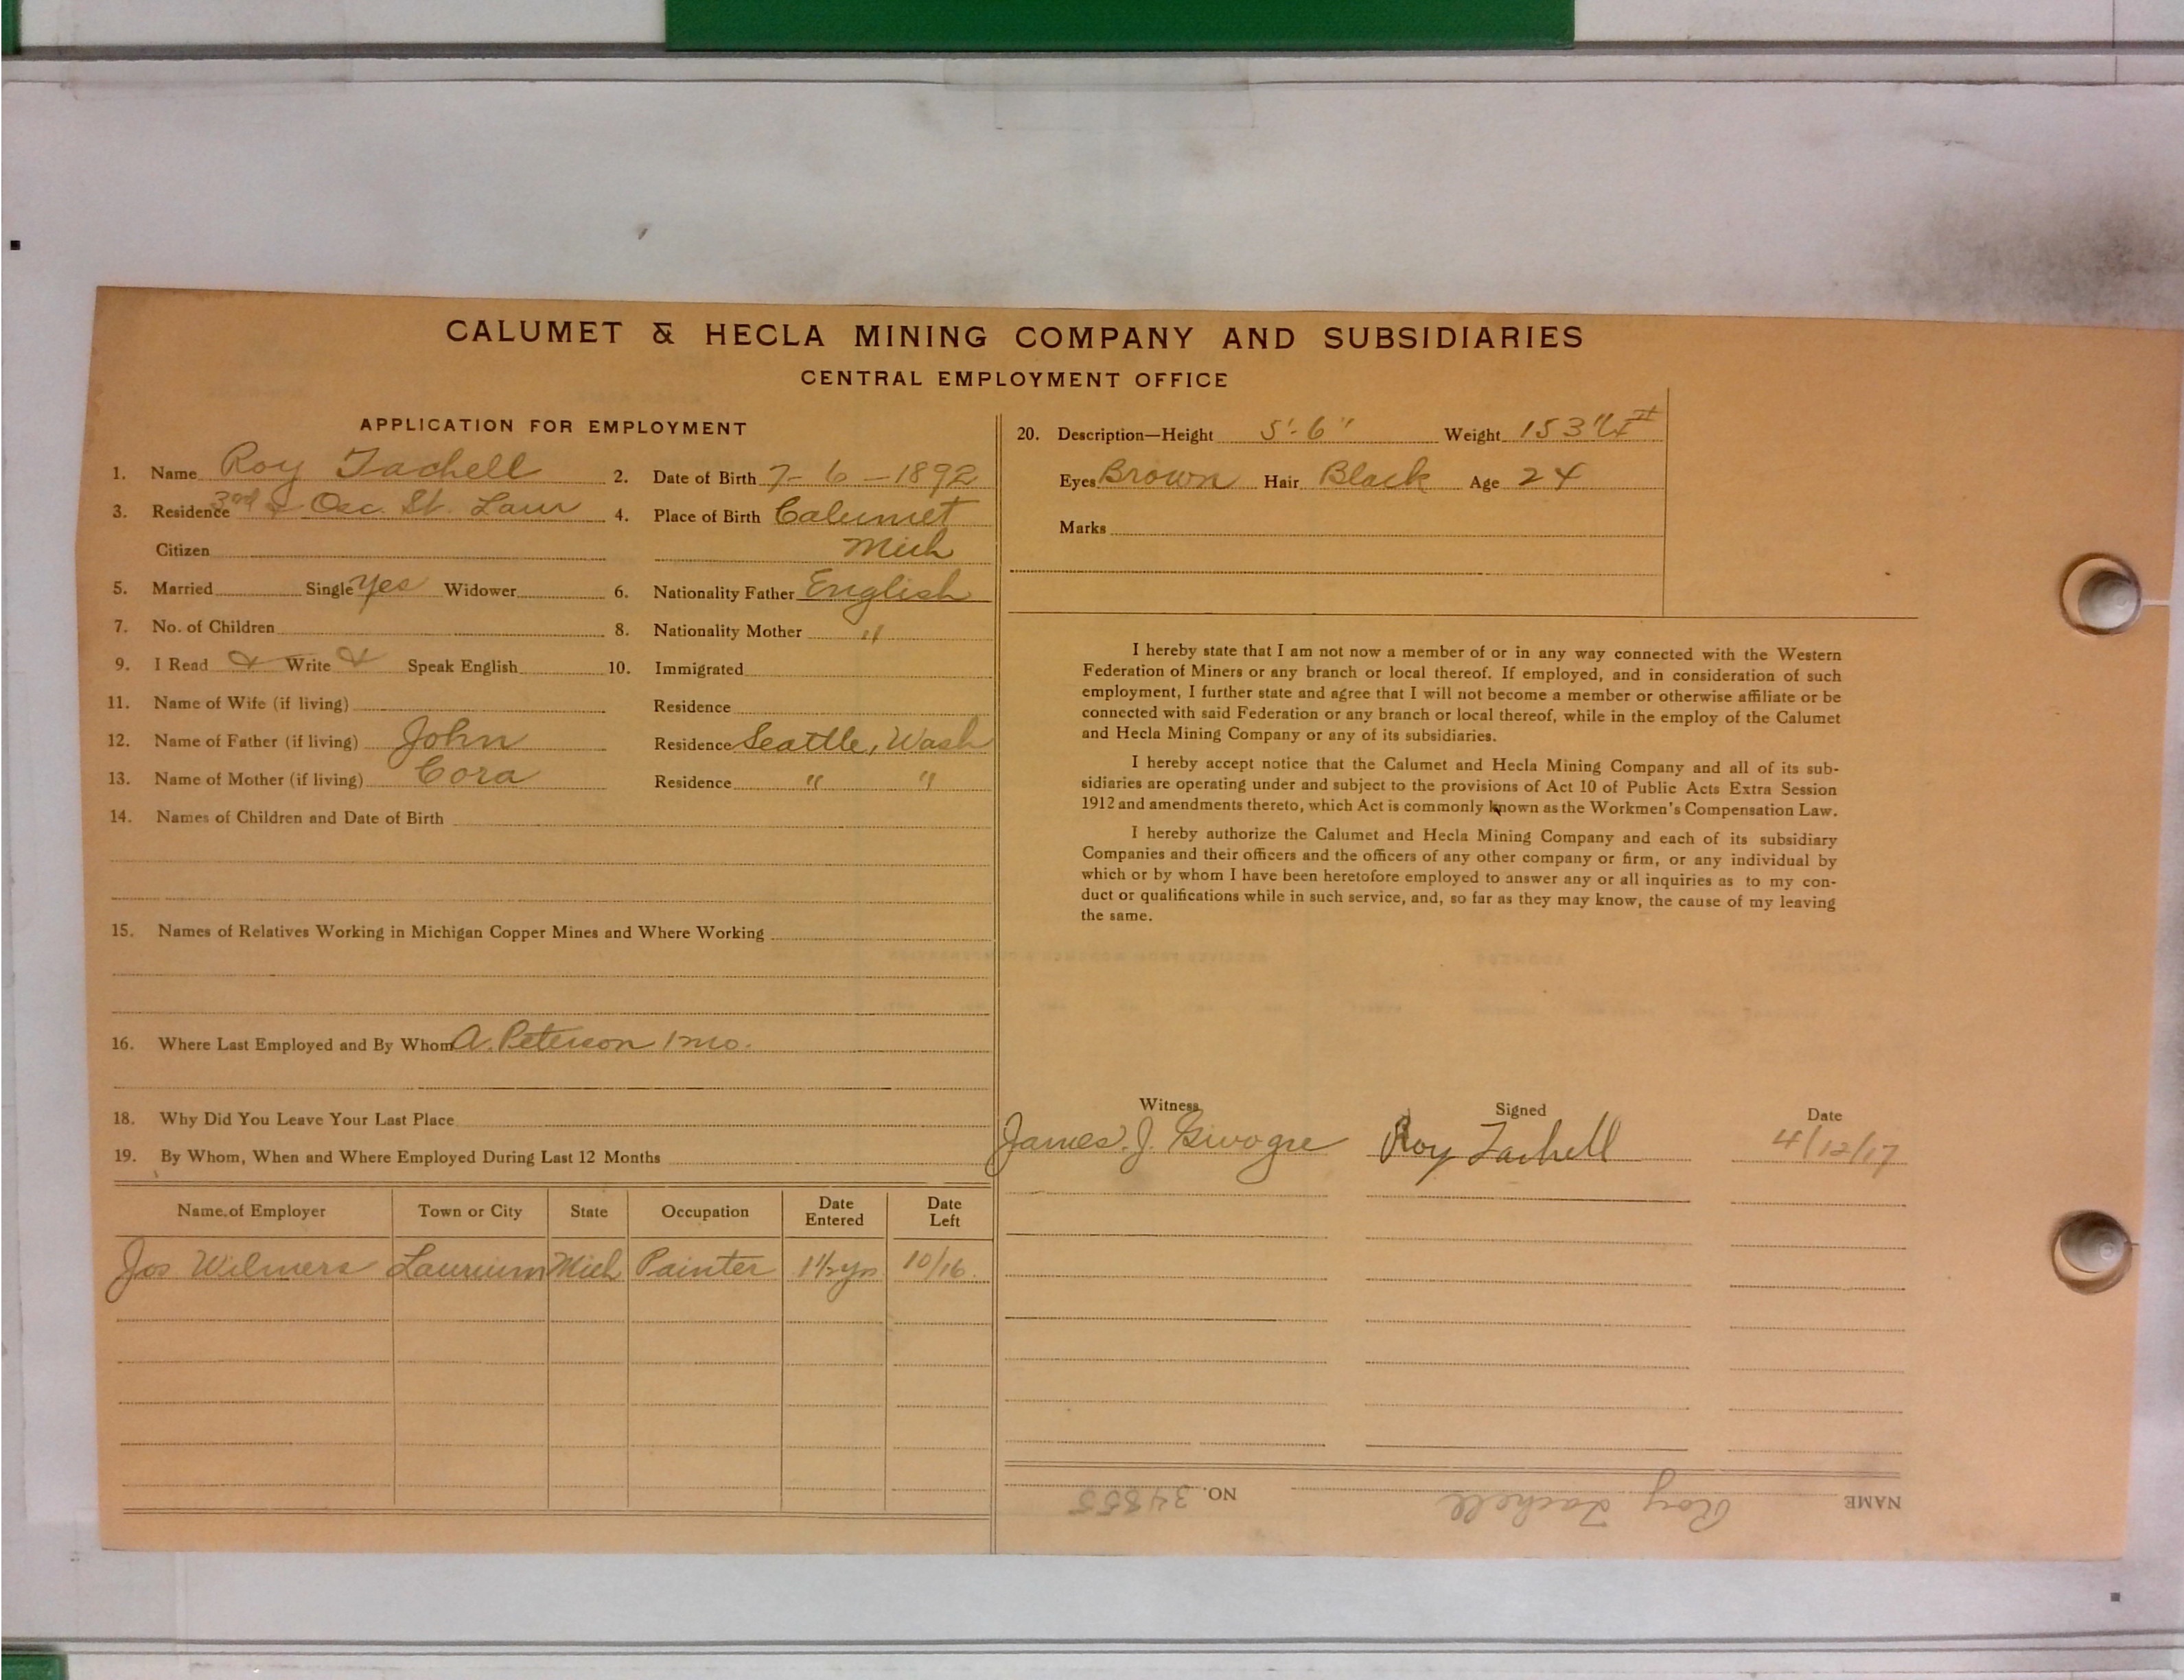 CALUMET & HECLA MINING COMPANY AND SUBSIDIARIES
CENTRAL EMPLOYMENT OFFICE
APPLICATION FOR EMPLOYMENT
1. Name Roy Tachell 2. Date of Birth 7-6-1892
3. Residence 3rd & Osc. St. Laur 4. Place of Birth Calumet
Citizen Mich
5. Married Single Yes Widower 6. Nationality Father English
7. No. of Children 8. Nationality Mother "
9. I Read & Write & Speak English 10. Immigrated
11. Name of Wife (if living) Residence
12. Name of Father (if living) John Residence Seattle, Wash
13. Name of Mother (if living) Cora Residence " "
14. Names of Children and Date of Birth
15. Names of Relatives Working in Michigan Copper Mines and Where Working
16. Where Last Employed and By Whom A. Peterson 1 mo.
18. Why Did You Leave Your Last Place
19. By Whom, When and Where Employed During Last 12 Months
Name of Employer Town or City State Occupation Date Entered Date Left
Jos Wilmers Laurium Mich Painter 1 1/2 yrs 10/16
20. Description—Height 5'-6" Weight 153
Eyes Brown Hair Black Age 24
Marks
I hereby state that I am not now a member of or in any way connected with the Western
Federation of Miners or any branch or local thereof. If employed, and in consideration of such
employment, I further state and agree that I will not become a member or otherwise affiliate or be
connected with said Federation or any branch or local thereof, while in the employ of the Calumet
and Hecla Mining Company or any of its subsidiaries.
I hereby accept notice that the Calumet and Hecla Mining Company and all of its sub-
sidiaries are operating under and subject to the provisions of Act 10 of Public Acts Extra Session
1912 and amendments thereto, which Act is commonly known as the Workmen's Compensation Law.
I hereby authorize the Calumet and Hecla Mining Company and each of its subsidiary
Companies and their officers and the officers of any other company or firm, or any individual by
which or by whom I have been heretofore employed to answer any or all inquiries as to my con-
duct or qualifications while in such service, and, so far as they may know, the cause of my leaving
the same.
Witness Signed Date
James. J. Roy Tachell 4/12/17
NAME Roy Tachell NO. 34855